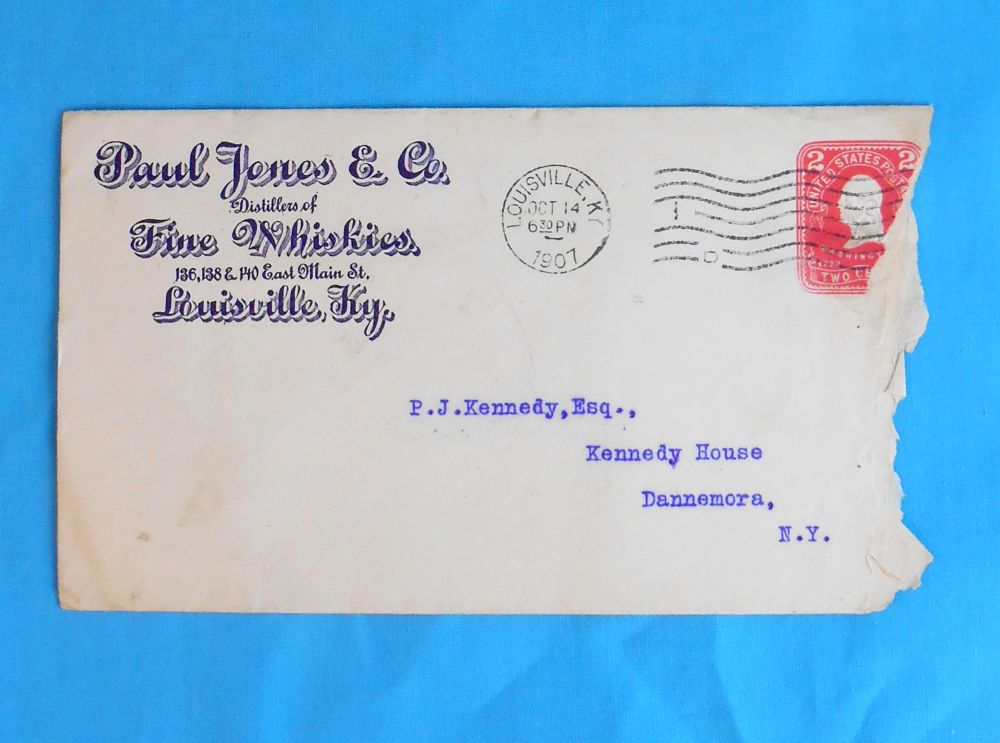 Paul Jones & Co.
Distillers of
Fine Whiskies.
136,138 & 140 East Main St.
Louisville, Ky.
LOUISVILLE, KY
OCT 14
6 30 PM
1907
1
D
2 2
UNITED STATES POSTA
TWO CE
P.J.Kennedy,Esq.,
Kennedy House
Dannemora,
N.Y.